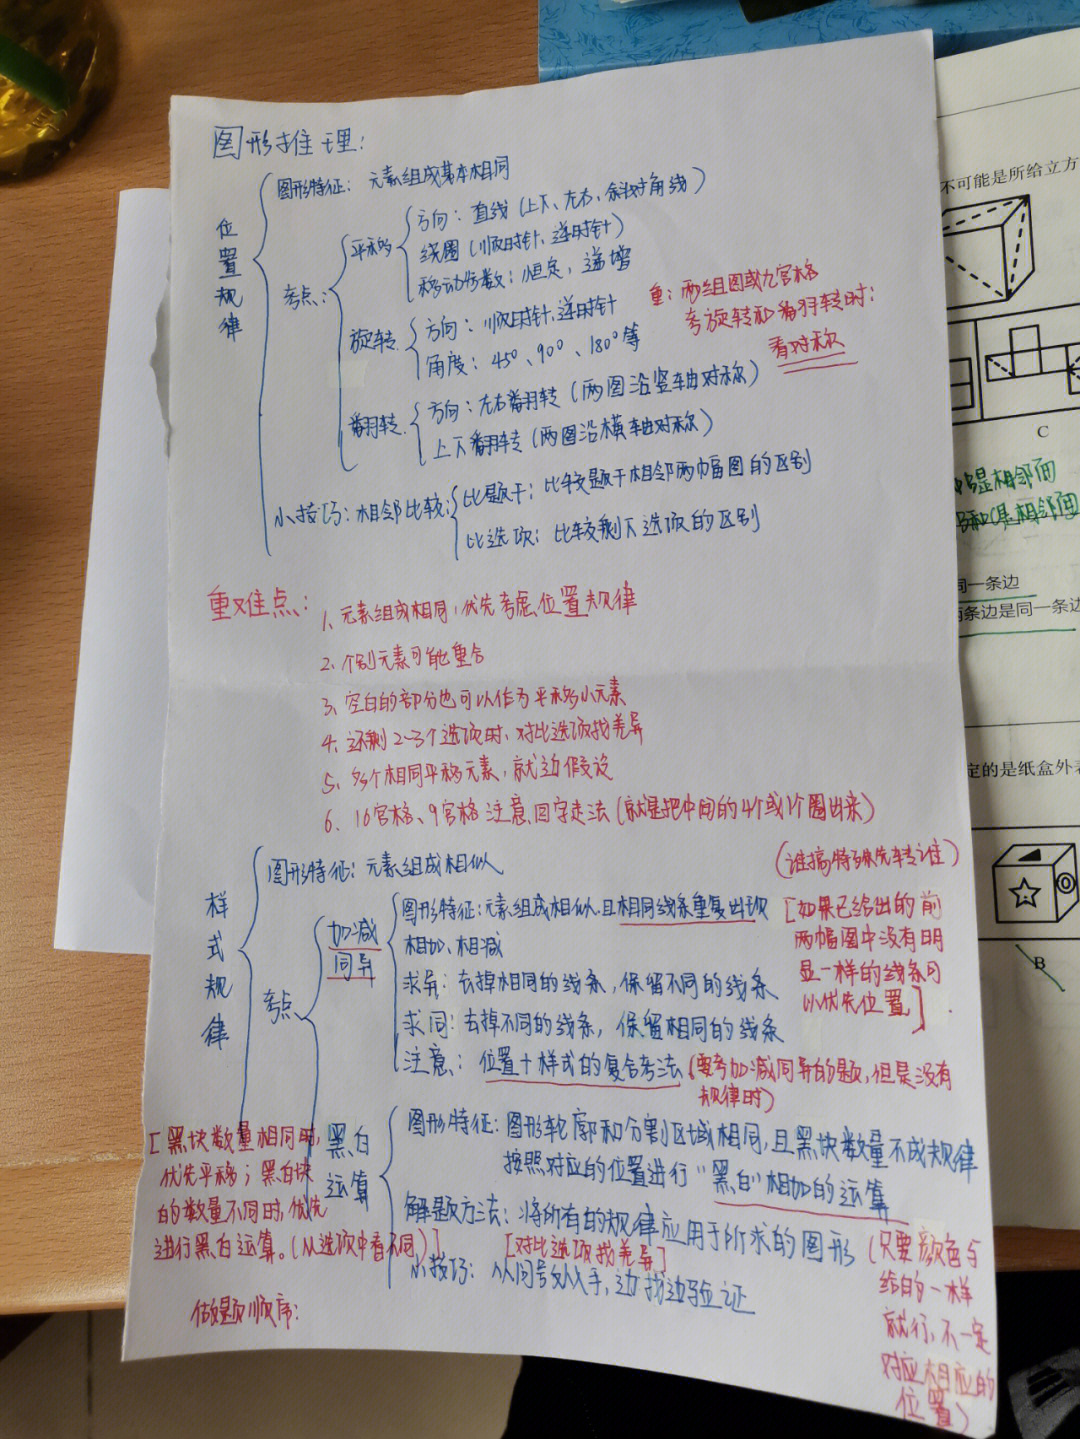 图形推理:
位置规律
图形特征: 元素组成基本相同
考点:
平移
方向: 直线 (上下、左右、斜对角线)
绕圈 (顺时针、逆时针)
移动步数: 恒定, 递增
旋转
方向: 顺时针、逆时针
角度: 45°、90°、180°等
重: 两组图或九宫格
考旋转和翻转时:
看对称
翻转
方向: 左右翻转 (两图沿竖轴对称)
上下翻转 (两图沿横轴对称)
小技巧: 相邻比较:
比题干: 比较题干相邻两幅图的区别
比选项: 比较剩下选项的区别
重难点:
1、元素组成相同, 优先考虑位置规律
2、个别元素可能重合
3、空白的部分也可以作为平移小元素
4、还剩2~3个选项时, 对比选项找差异
5、多个相同平移元素, 就边假设
6、16宫格、9宫格注意回字走法 (就是把中间的4个或1个圈出来)
样式规律
图形特征: 元素组成相似
(谁搞特殊先转谁)
考点
加减
同异
图形特征: 元素组成相似.且相同线条重复出现
相加、相减
求异: 去掉相同的线条, 保留不同的线条
求同: 去掉不同的线条, 保留相同的线条
注意: 位置+样式的复合考法 (要考加减同异的题, 但是没有
规律时)
[如果已给出的前
两幅图中没有明
显一样的线条可
以优先位置]
黑白
运算
图形特征: 图形轮廓和分割区域相同, 且黑块数量不成规律
按照对应的位置进行“黑白”相加的运算
解题方法: 将所有的规律应用于所求的图形
[对比选项找差异]
小技巧: 从问号处入手, 边找边验证
[黑块数量相同时,
优先平移; 黑白块
的数量不同时, 优先
进行黑白运算。(从选项中看不同)]
(只要颜色与
给的一样
就行, 不一定
对应相应的
位置)
做题顺序:
不可能是所给立方
C
是相邻面
和C是相邻面
同一条边
两条边是同一条边
定的是纸盒外表
B